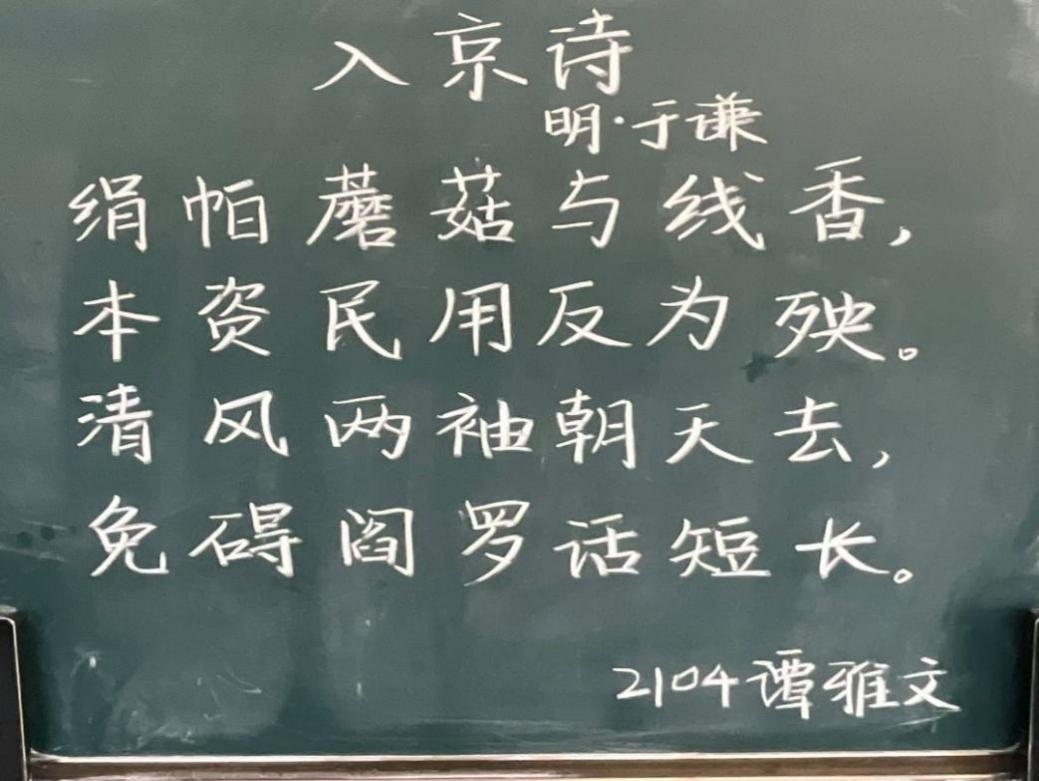 入京诗
明·于谦
绢帕蘑菇与线香，
本资民用反为殃。
清风两袖朝天去，
免碍阎罗话短长。
2104谭雅文